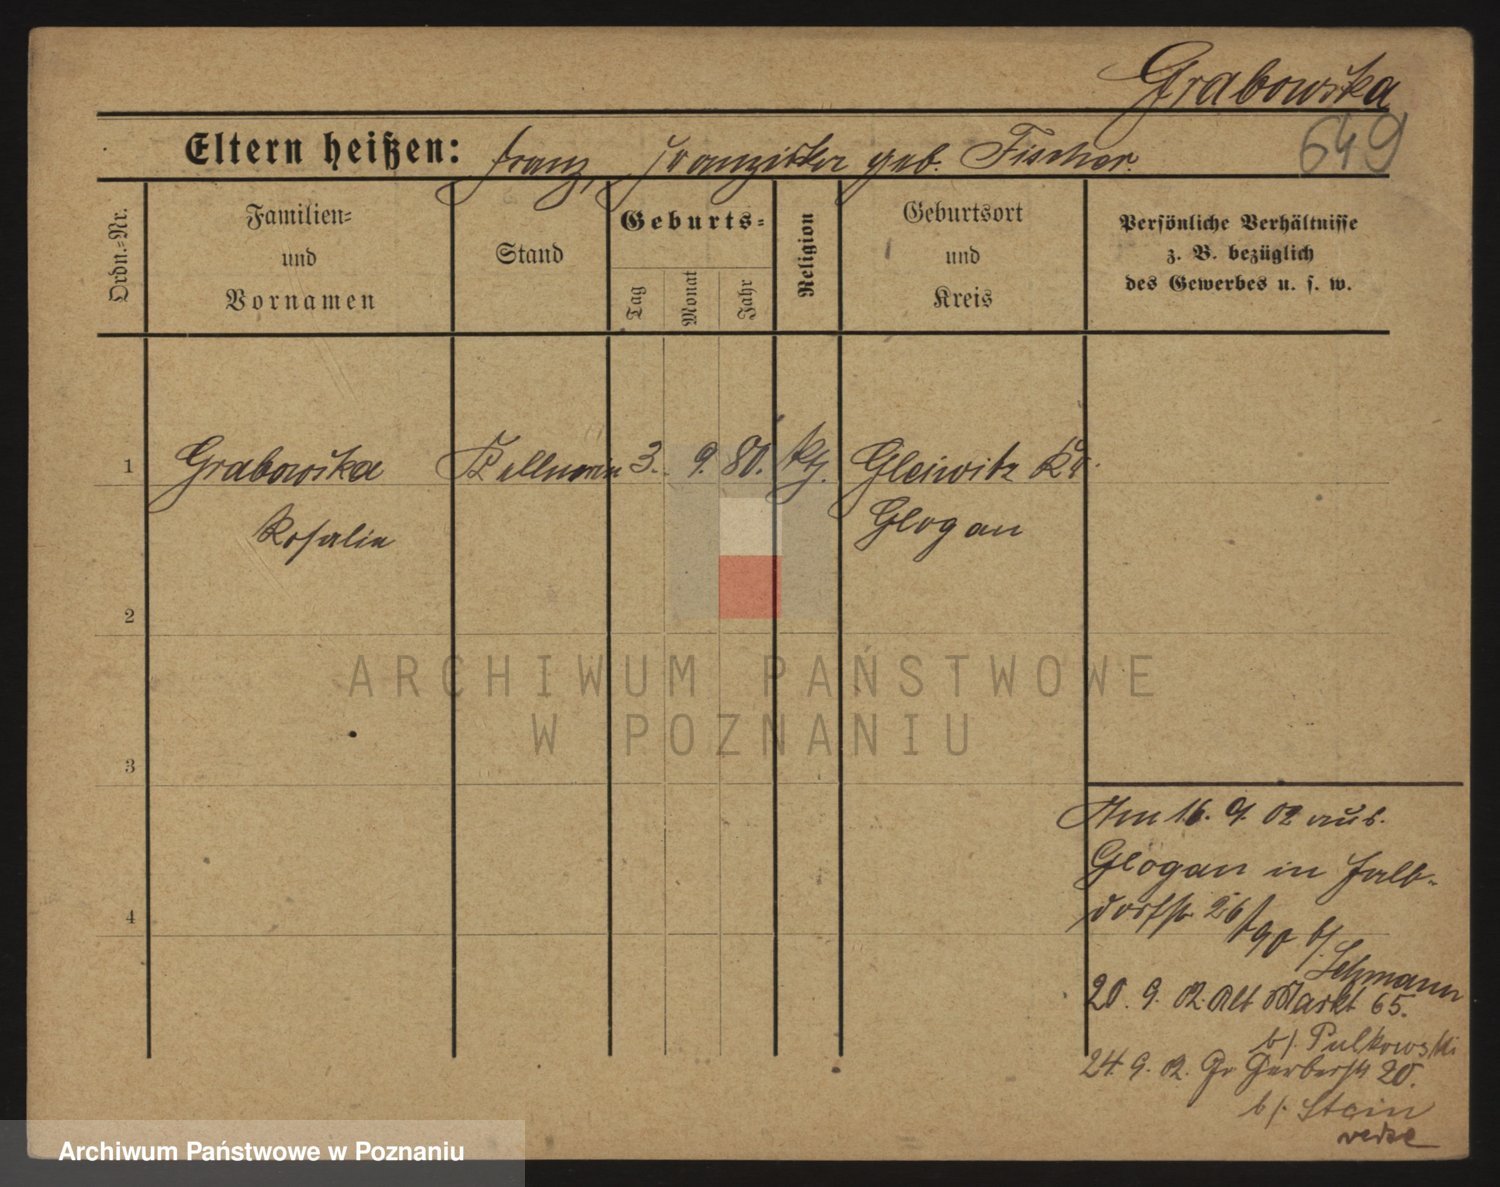 Grabowska
649
Eltern heißen: Franz, Franziska geb. Fischer.
Ordn.=Nr.
Familien=
und
Vornamen
Stand
Geburts=
Tag
Monat
Jahr
Religion
Geburtsort
und
Kreis
Persönliche Verhältnisse
z. B. bezüglich
des Gewerbes u. s. w.
1 Grabowska Kellnerin 3. 9. 80. kth. Gleiwitz Kr.
Rosalie Glogau
2
ARCHIWUM PAŃSTWOWE
W POZNANIU
3
Am 16. 9. 02 aus.
Glogau in Halb-
dorfstr 26 b/.
4
Lehmann
20. 9. 02. Alt Markt 65.
b/. Pulkowski
24. 9. 02. Gr Gerberstr 20.
b/. Stein
verte
Archiwum Państwowe w Poznaniu